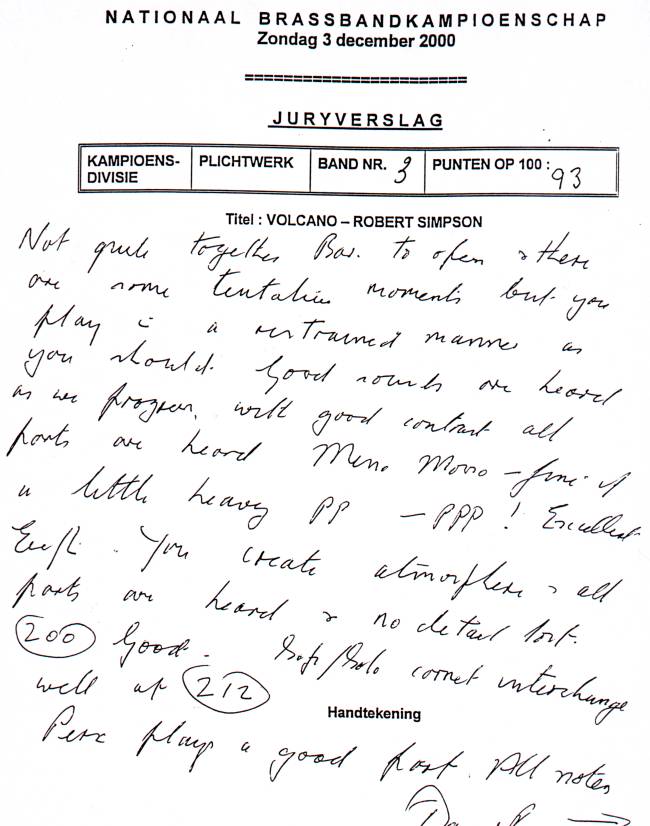 NATIONAAL BRASSBANDKAMPIOENSCHAP
Zondag 3 december 2000
======================
JURYVERSLAG
KAMPIOENS-DIVISIE PLICHTWERK BAND NR. 3 PUNTEN OP 100 : 93
Titel : VOLCANO – ROBERT SIMPSON
Not quite together Bar. to open & there
are some tentative moments but you
play in a restrained manner as
you should. Good sounds are heard
as we progress, with good contrast all
parts are heard Meno Mosso – fine if
a little heavy PP – PPP ! Excellent
Euph. You create atmosphere & all
parts are heard & no detail lost.
200 Good. Sop/Solo cornet interchange
well at 212
Handtekening
Perc play a good part. All notes